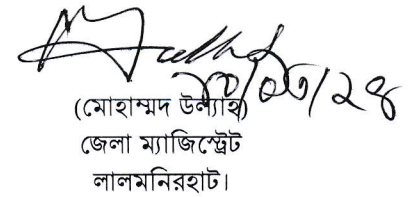 (মোহাম্মদ উল্যাহ)
জেলা ম্যাজিস্ট্রেট
লালমনিরহাট।